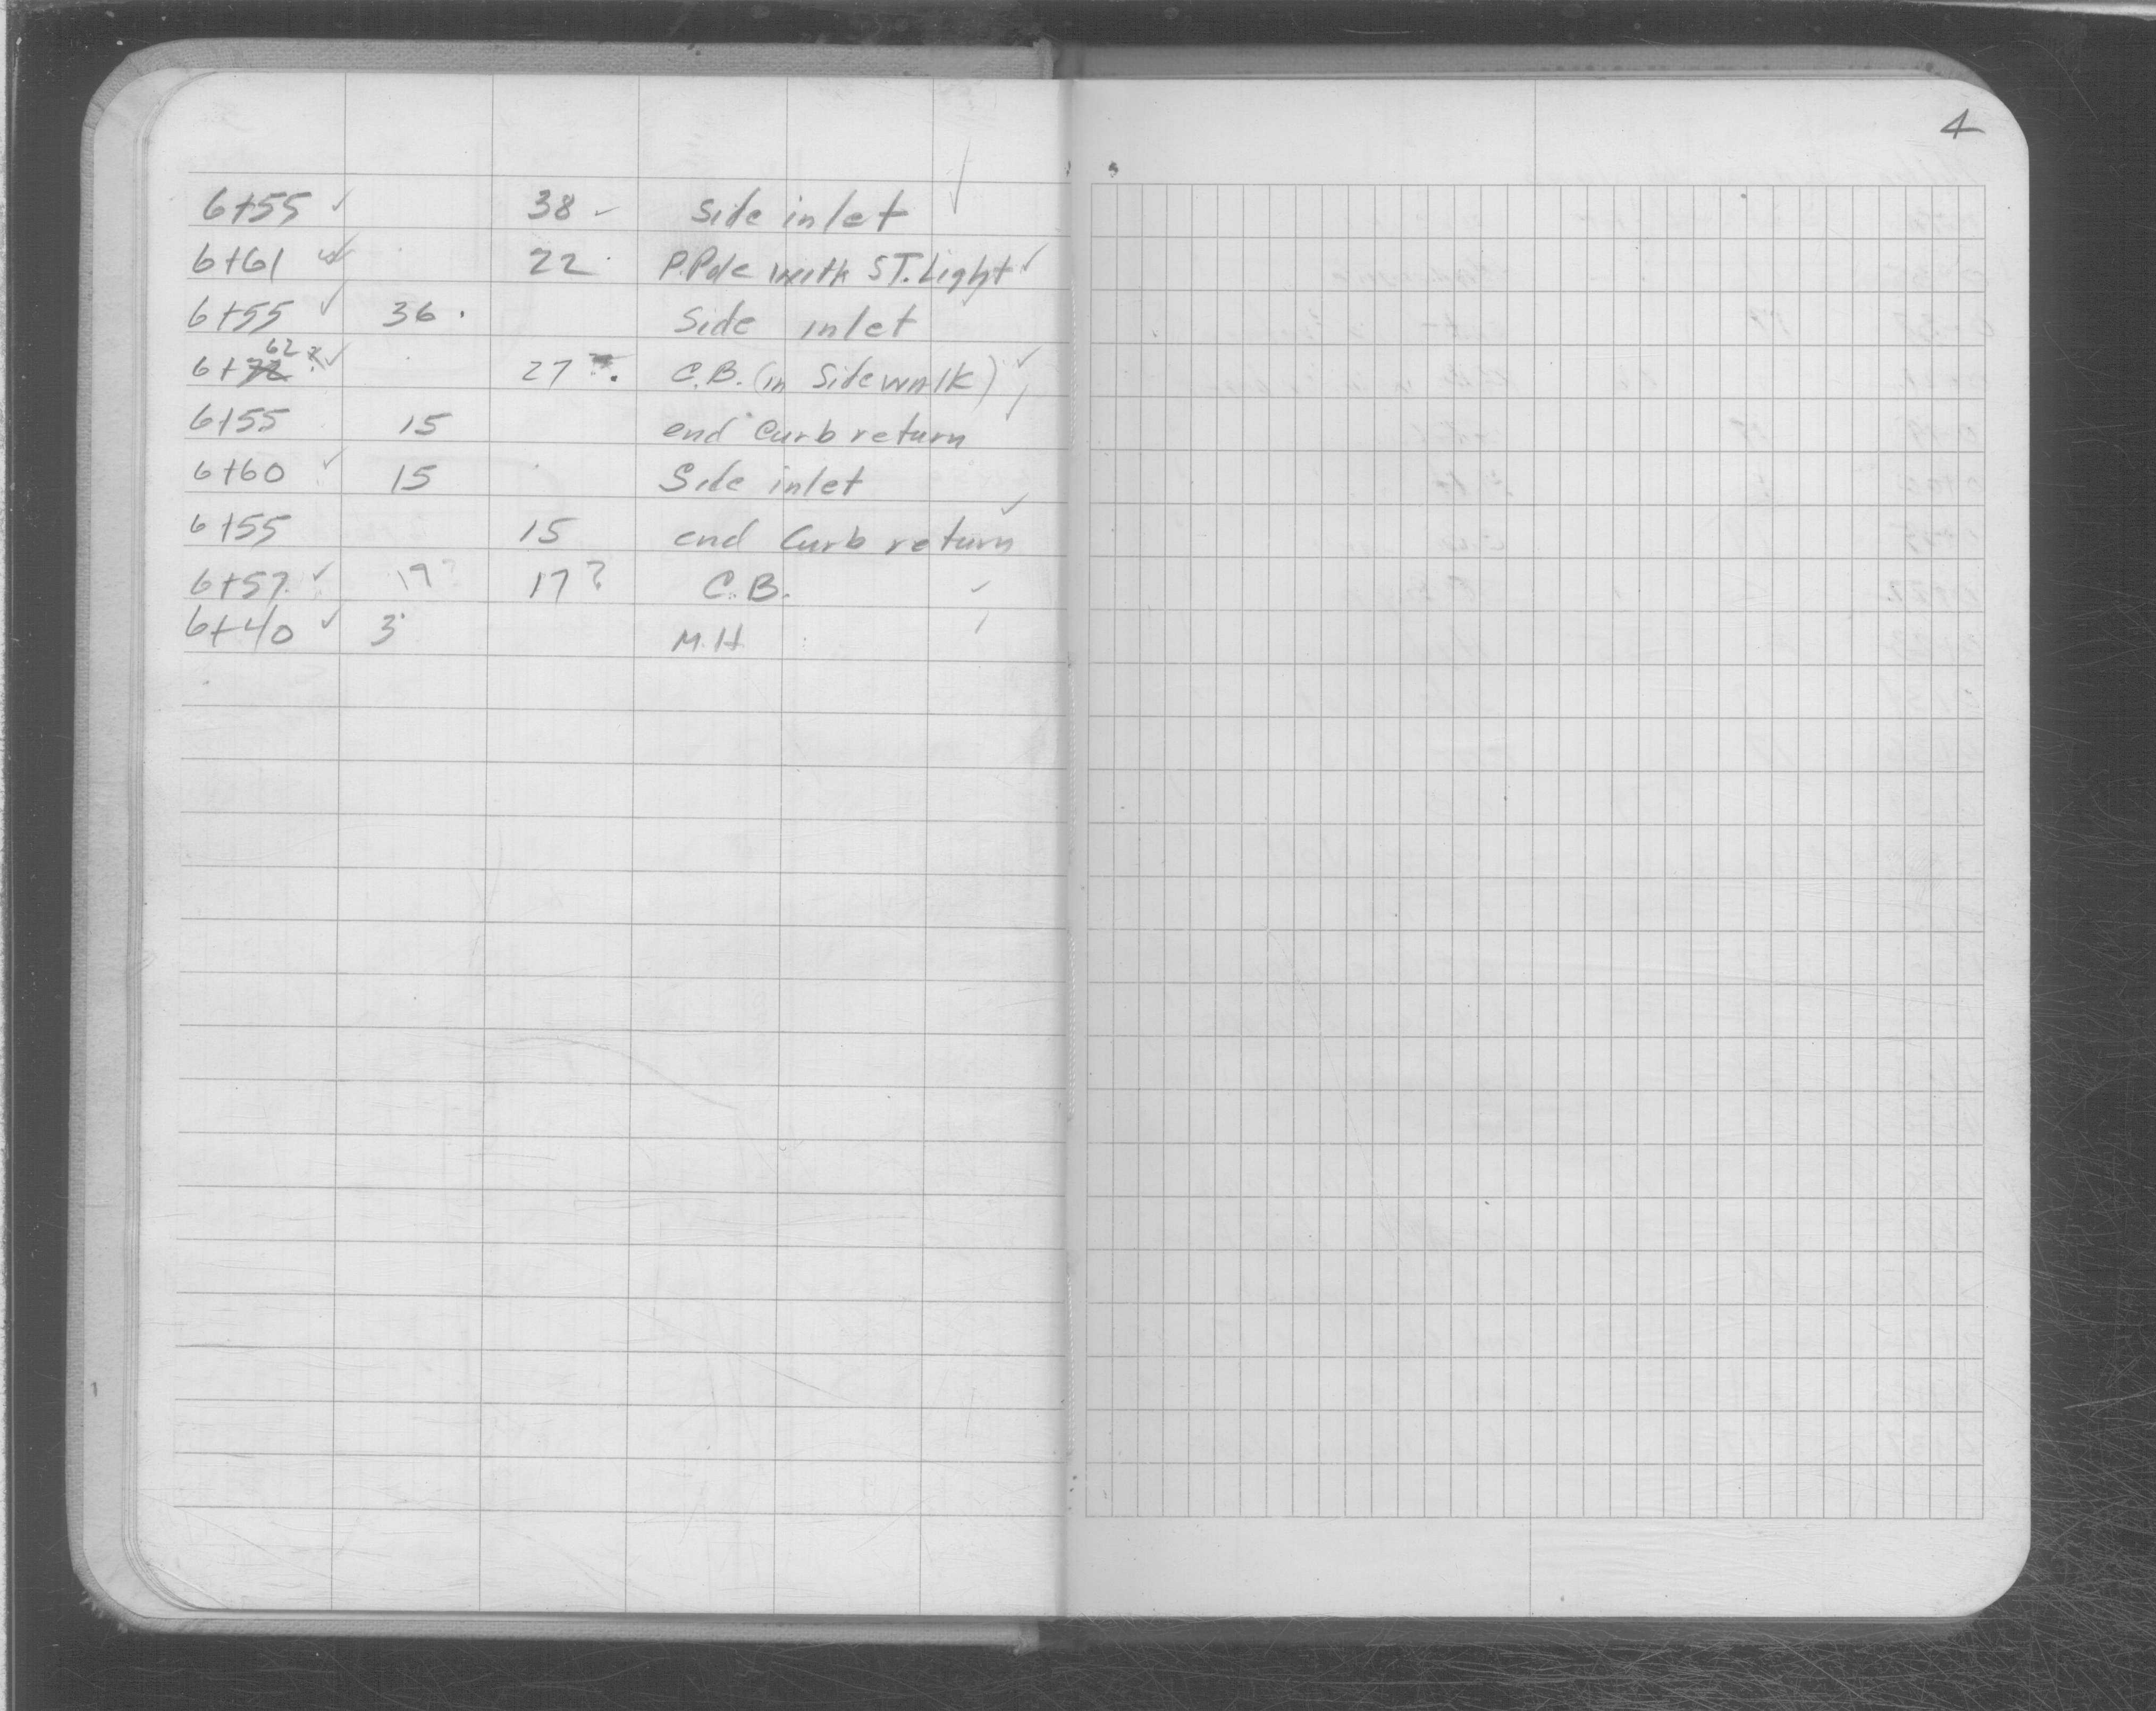 4
6+55 ✓ 38 - Side inlet ✓
6+61 ✓ 22 P.Pole with ST. Light ✓
6+55 ✓ 36 . Side inlet
6+62 ? ✓ 27 ? . C.B. (in Sidewalk) ✓
6+55 15 end Curb return ✓
6+60 ✓ 15 Side inlet
6+55 15 end Curb return ✓
6+57. ✓ 17? 17? C.B. ✓
6+40 ✓ 3 M.H ✓